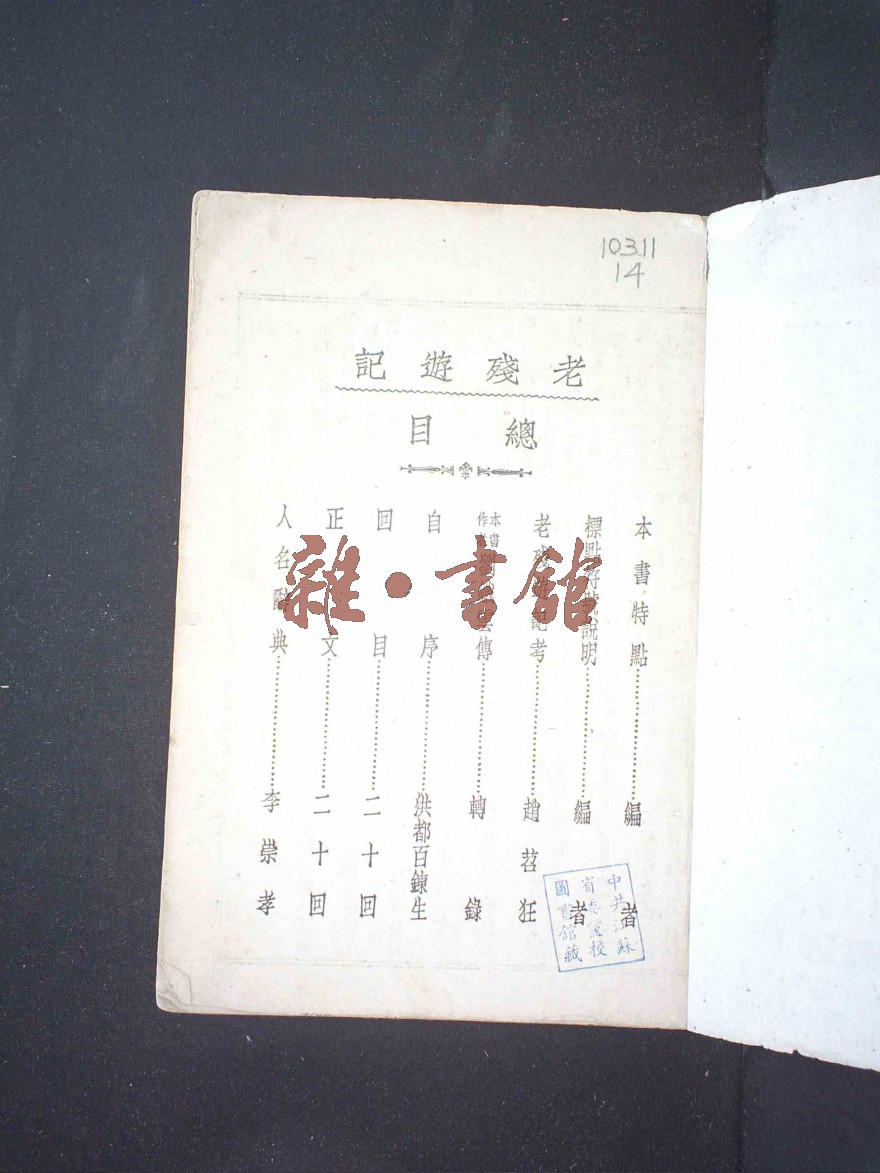 10311
14
老殘遊記
總目
本書特點……編者
標點符號說明……編者
老殘遊記考……趙苕狂
本書作者劉鐵雲傳……轉錄
自序……洪都百鍊生
回目……二十回
正文……二十回
人名辭典……李崇孝
雜·書館
中共江蘇
省委黨校
圖書館藏